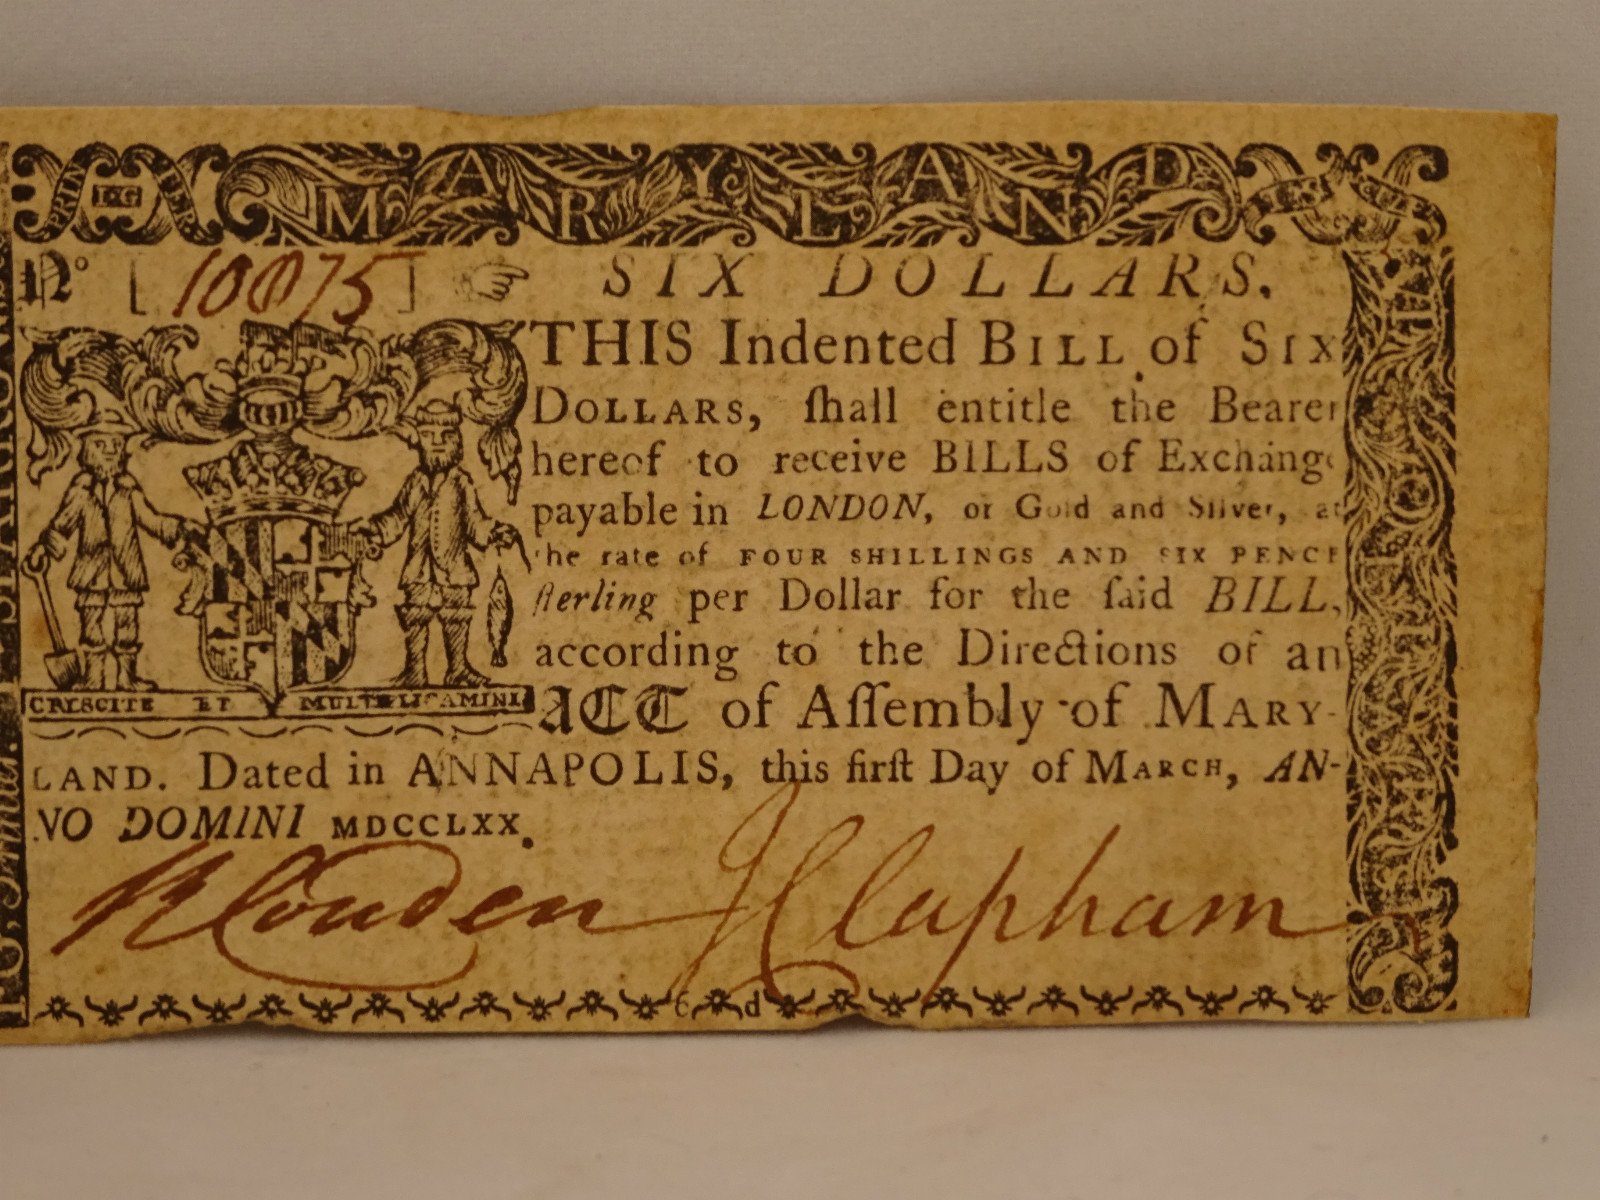 PRIN I·G TER MARYLAND
Nº [10075] SIX DOLLARS.
THIS Indented BILL of SIX
DOLLARS, ſhall entitle the Bearer
hereof to receive BILLS of Exchange
payable in LONDON, or Gold and Silver, at
the rate of FOUR SHILLINGS AND SIX PENCE
ſterling per Dollar for the ſaid BILL,
according to the Directions of an
ACT of Aſſembly of MARY-
LAND. Dated in ANNAPOLIS, this firſt Day of MARCH, AN-
NO DOMINI MDCCLXX.
CRESCITE ET MULTIPLICAMINI
Couden J Clapham